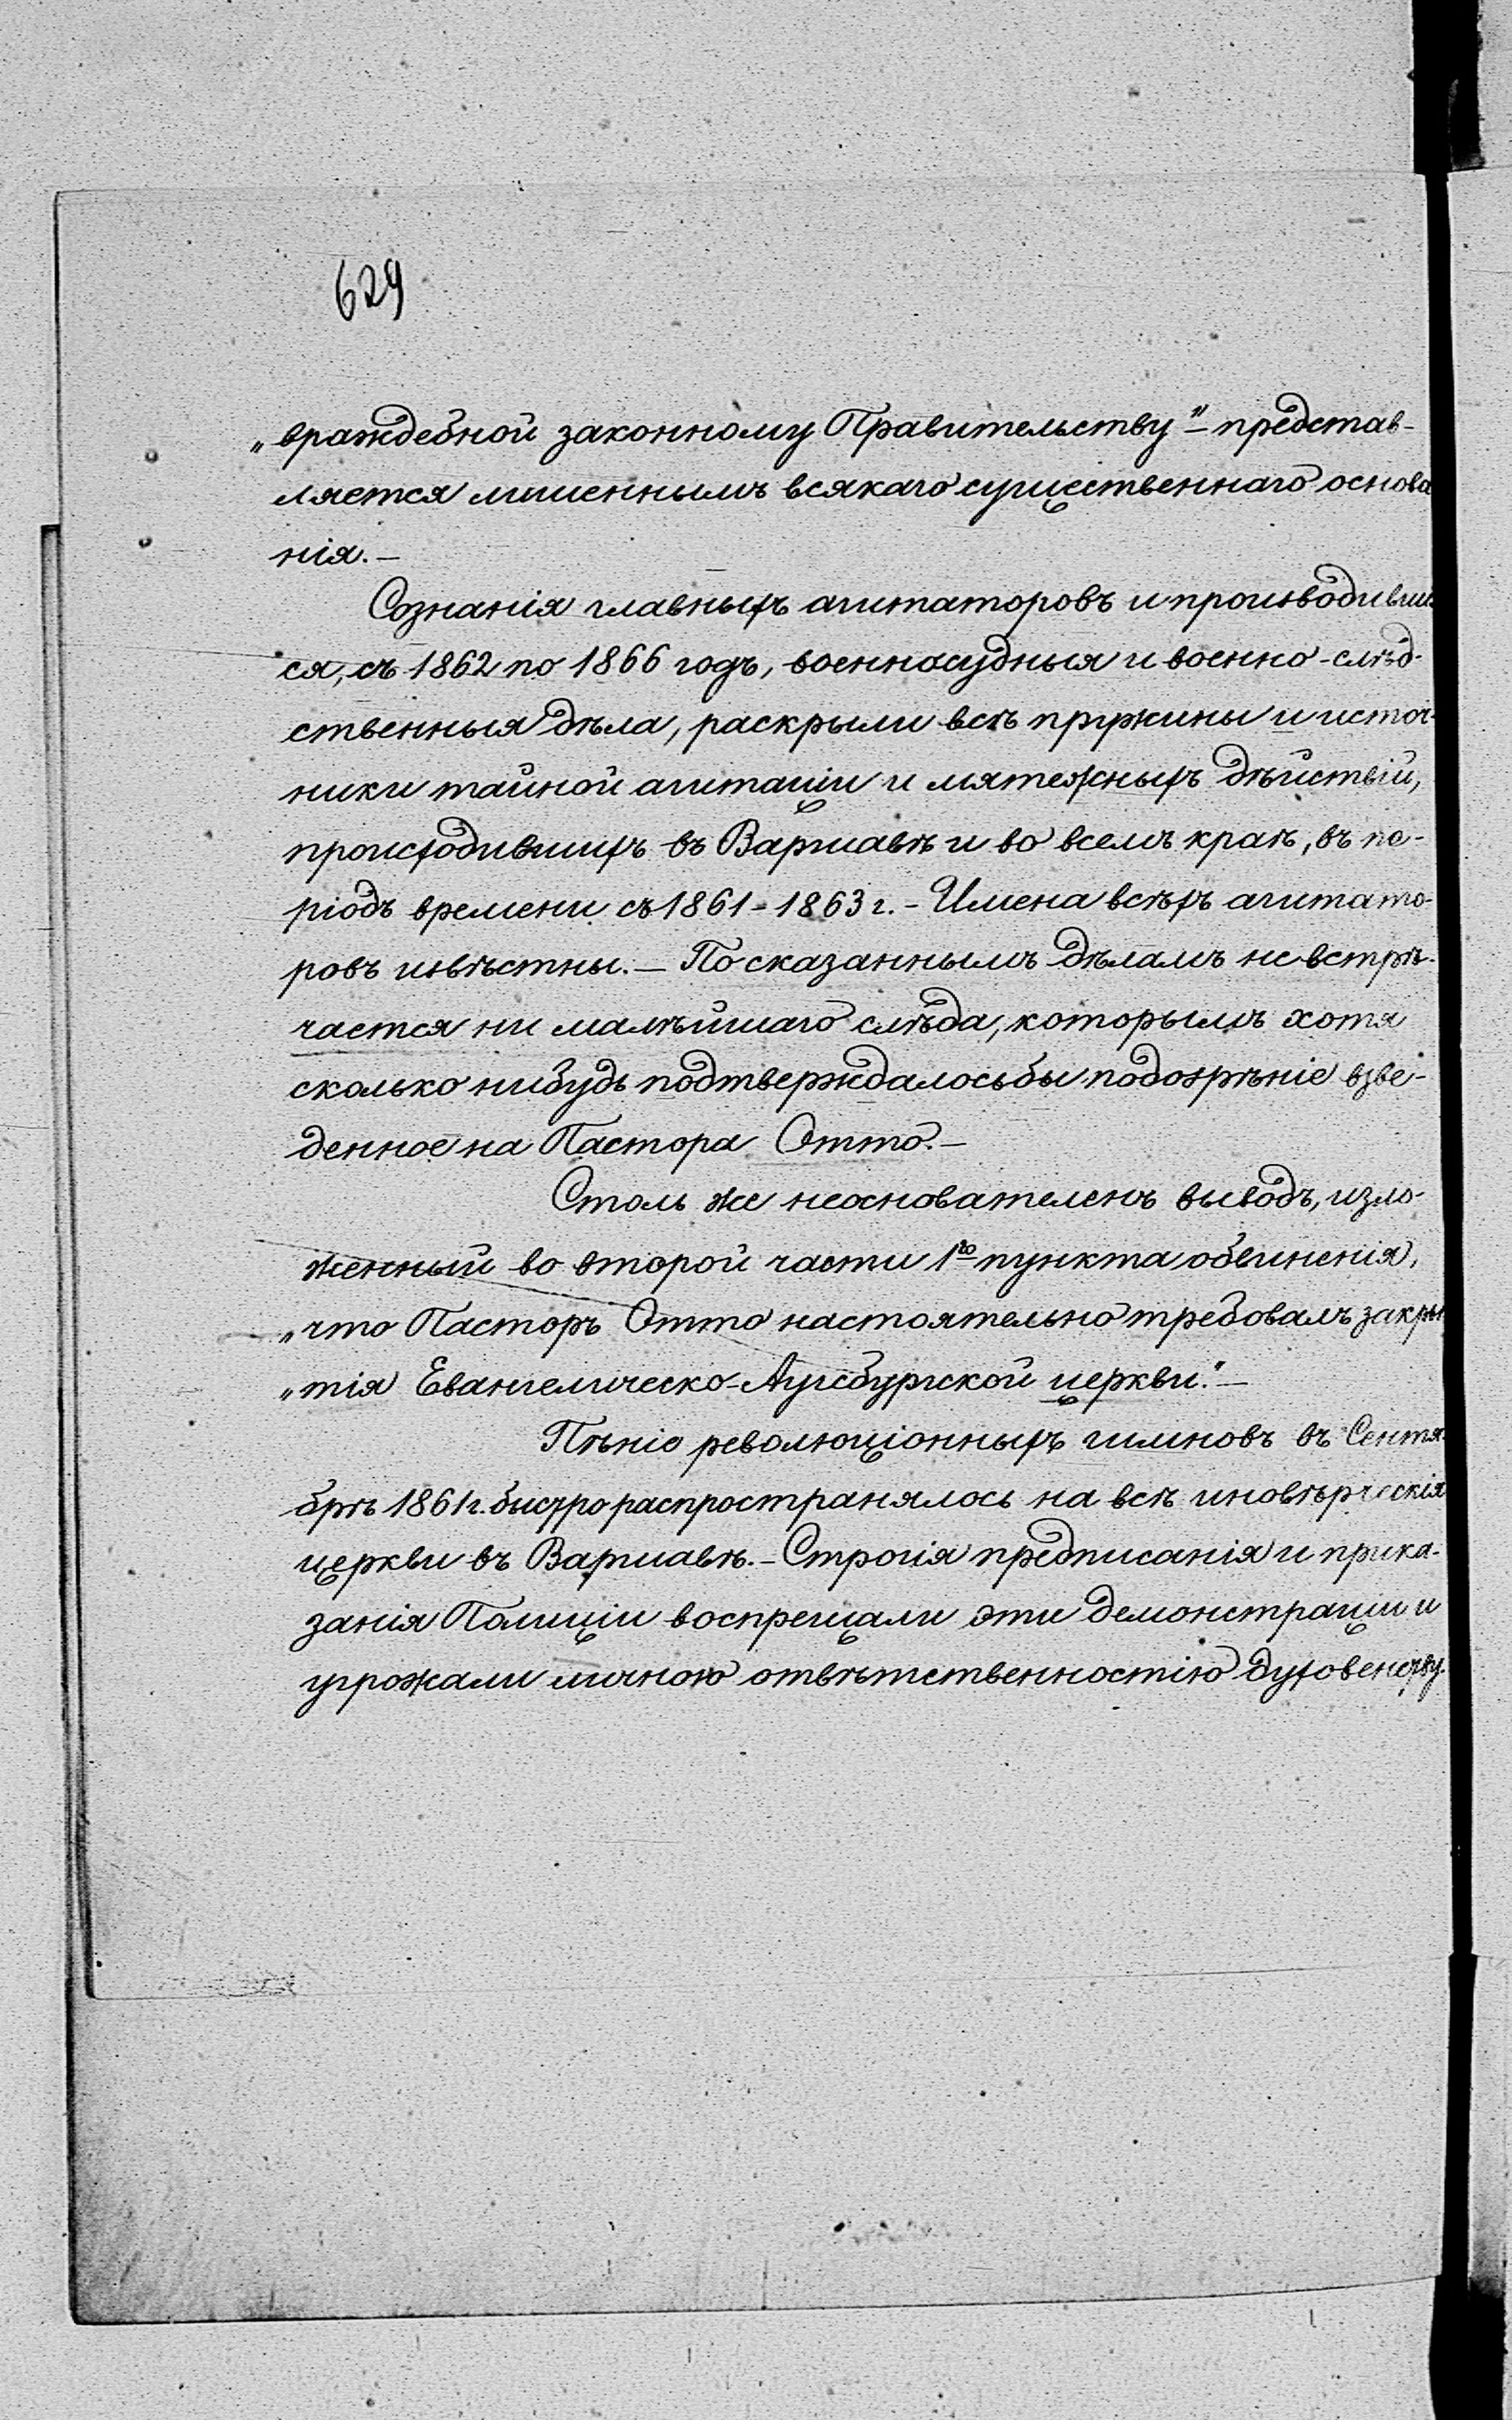 629
„враждебной законному Правительству“ – представ-
ляется лишеннымъ всякаго существеннаго основа
нія. –
Сознанія главныхъ агитаторовъ и производивші
ся, съ 1862 по 1866 годъ, военносудныя и военно-слѣд-
ственныя дѣла, раскрыли всѣ пружины и источ-
ники тайной агитаціи и мятежныхъ дѣйствій,
происходившихъ въ Варшавѣ и во всемъ краѣ, въ пе-
ріодъ времени съ 1861 - 1863 г. – Имена всѣхъ агитато-
ровъ извѣстны. – По сказаннымъ дѣламъ не встрѣ-
чается ни малѣйшаго слѣда, которымъ хотя
сколько нибудь подтверждалось бы подозрѣніе взве-
денное на Пастора Отто. –
Столь же неоснователенъ выводъ, изло-
женный во второй части 1го пункта обвиненія,
„что Пасторъ Отто настоятельно требовалъ закры
„тія Евангелическо-Аугсбургской церкви.“ –
Пѣніе революціонныхъ гимновъ въ Сентя-
брѣ 1861 г. быстро распространялось на всѣ иновѣрческія
церкви въ Варшавѣ. – Строгія предписанія и прика-
занія Полиціи воспрещали эти демонстраціи и
угрожали личною отвѣтственностію духовенству.